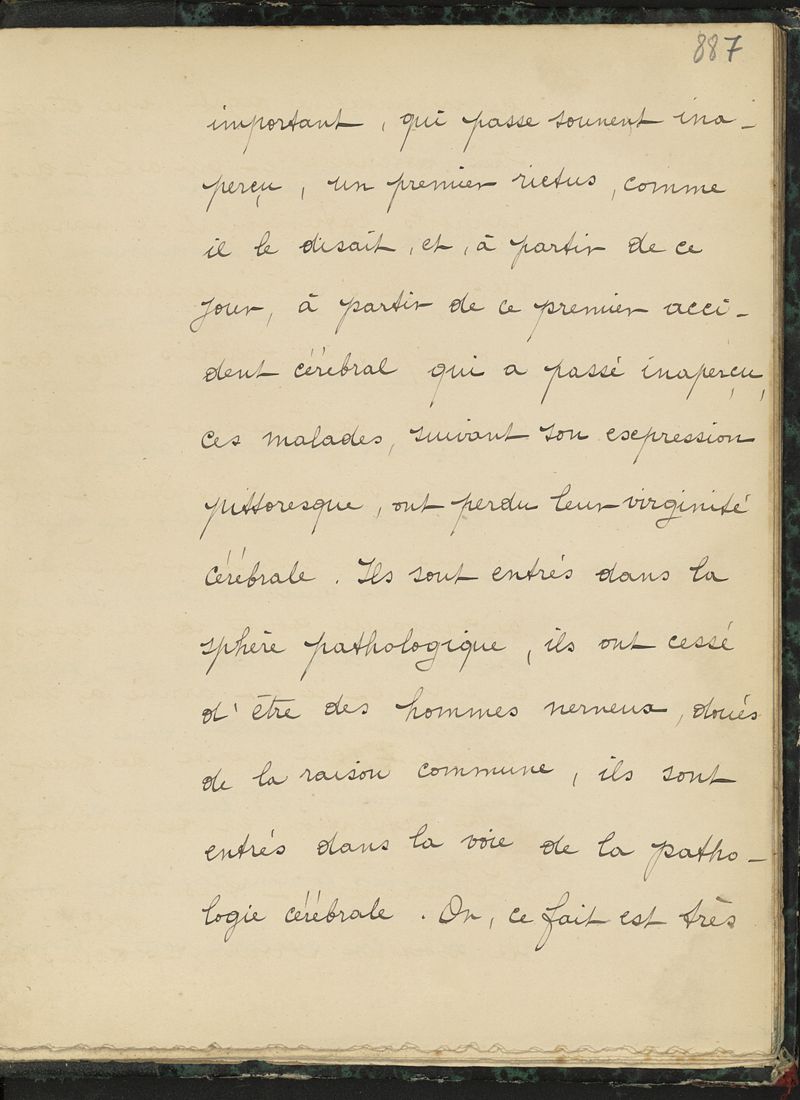 887
important, qui passe souvent ina-
perçu, un premier rictus, comme
il le disait, et, à partir de ce
jour, à partir de ce premier acci-
dent cérébral qui a passé inaperçu,
ces malades, suivant son expression
pittoresque, ont perdu leur virginité
cérébrale. Ils sont entrés dans la
sphère pathologique, ils ont cessé
d'être des hommes nerveux, doués
de la raison commune, ils sont
entrés dans la voie de la patho-
logie cérébrale. Or, ce fait est très